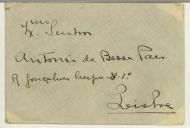 Exmo
Sr. Senhor
Antonio de Bessa Pais
R Gonçalves Crespo 8-1º
Lisboa